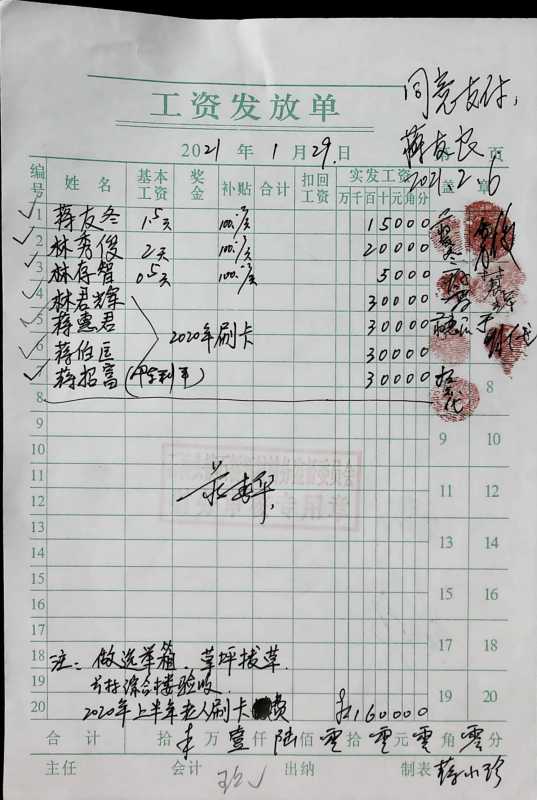 同意支付,
工资发放单
蒋友良
2021年1月29日 第 页
2021.2.6
编号 姓名 基本工资 奖金 补贴 合计 扣回工资 实发工资 盖章
万千百十元角分
1 蒋友冬 1.5天 100元/天 15000
2 林秀俊 2天 100元/天 20000
3 林存智 0.5天 100元/天 5000
4 林君辉 30000
5 蒋惠君 2020年刷卡 30000
6 蒋伯匡 30000
7 蒋招富 30000 8
8
9 9 10
10
11 11 12
12
13 13 14
14
15 15 16
16
17 17 18
18 注: 做选举箱、草坪拔草.
19 综合楼验收 19 20
20 2020年上半年老人刷卡费 ¥160000
合计 拾 万壹仟陆佰零拾零元零角零分
主任 会计 出纳 制表 蒋小珍